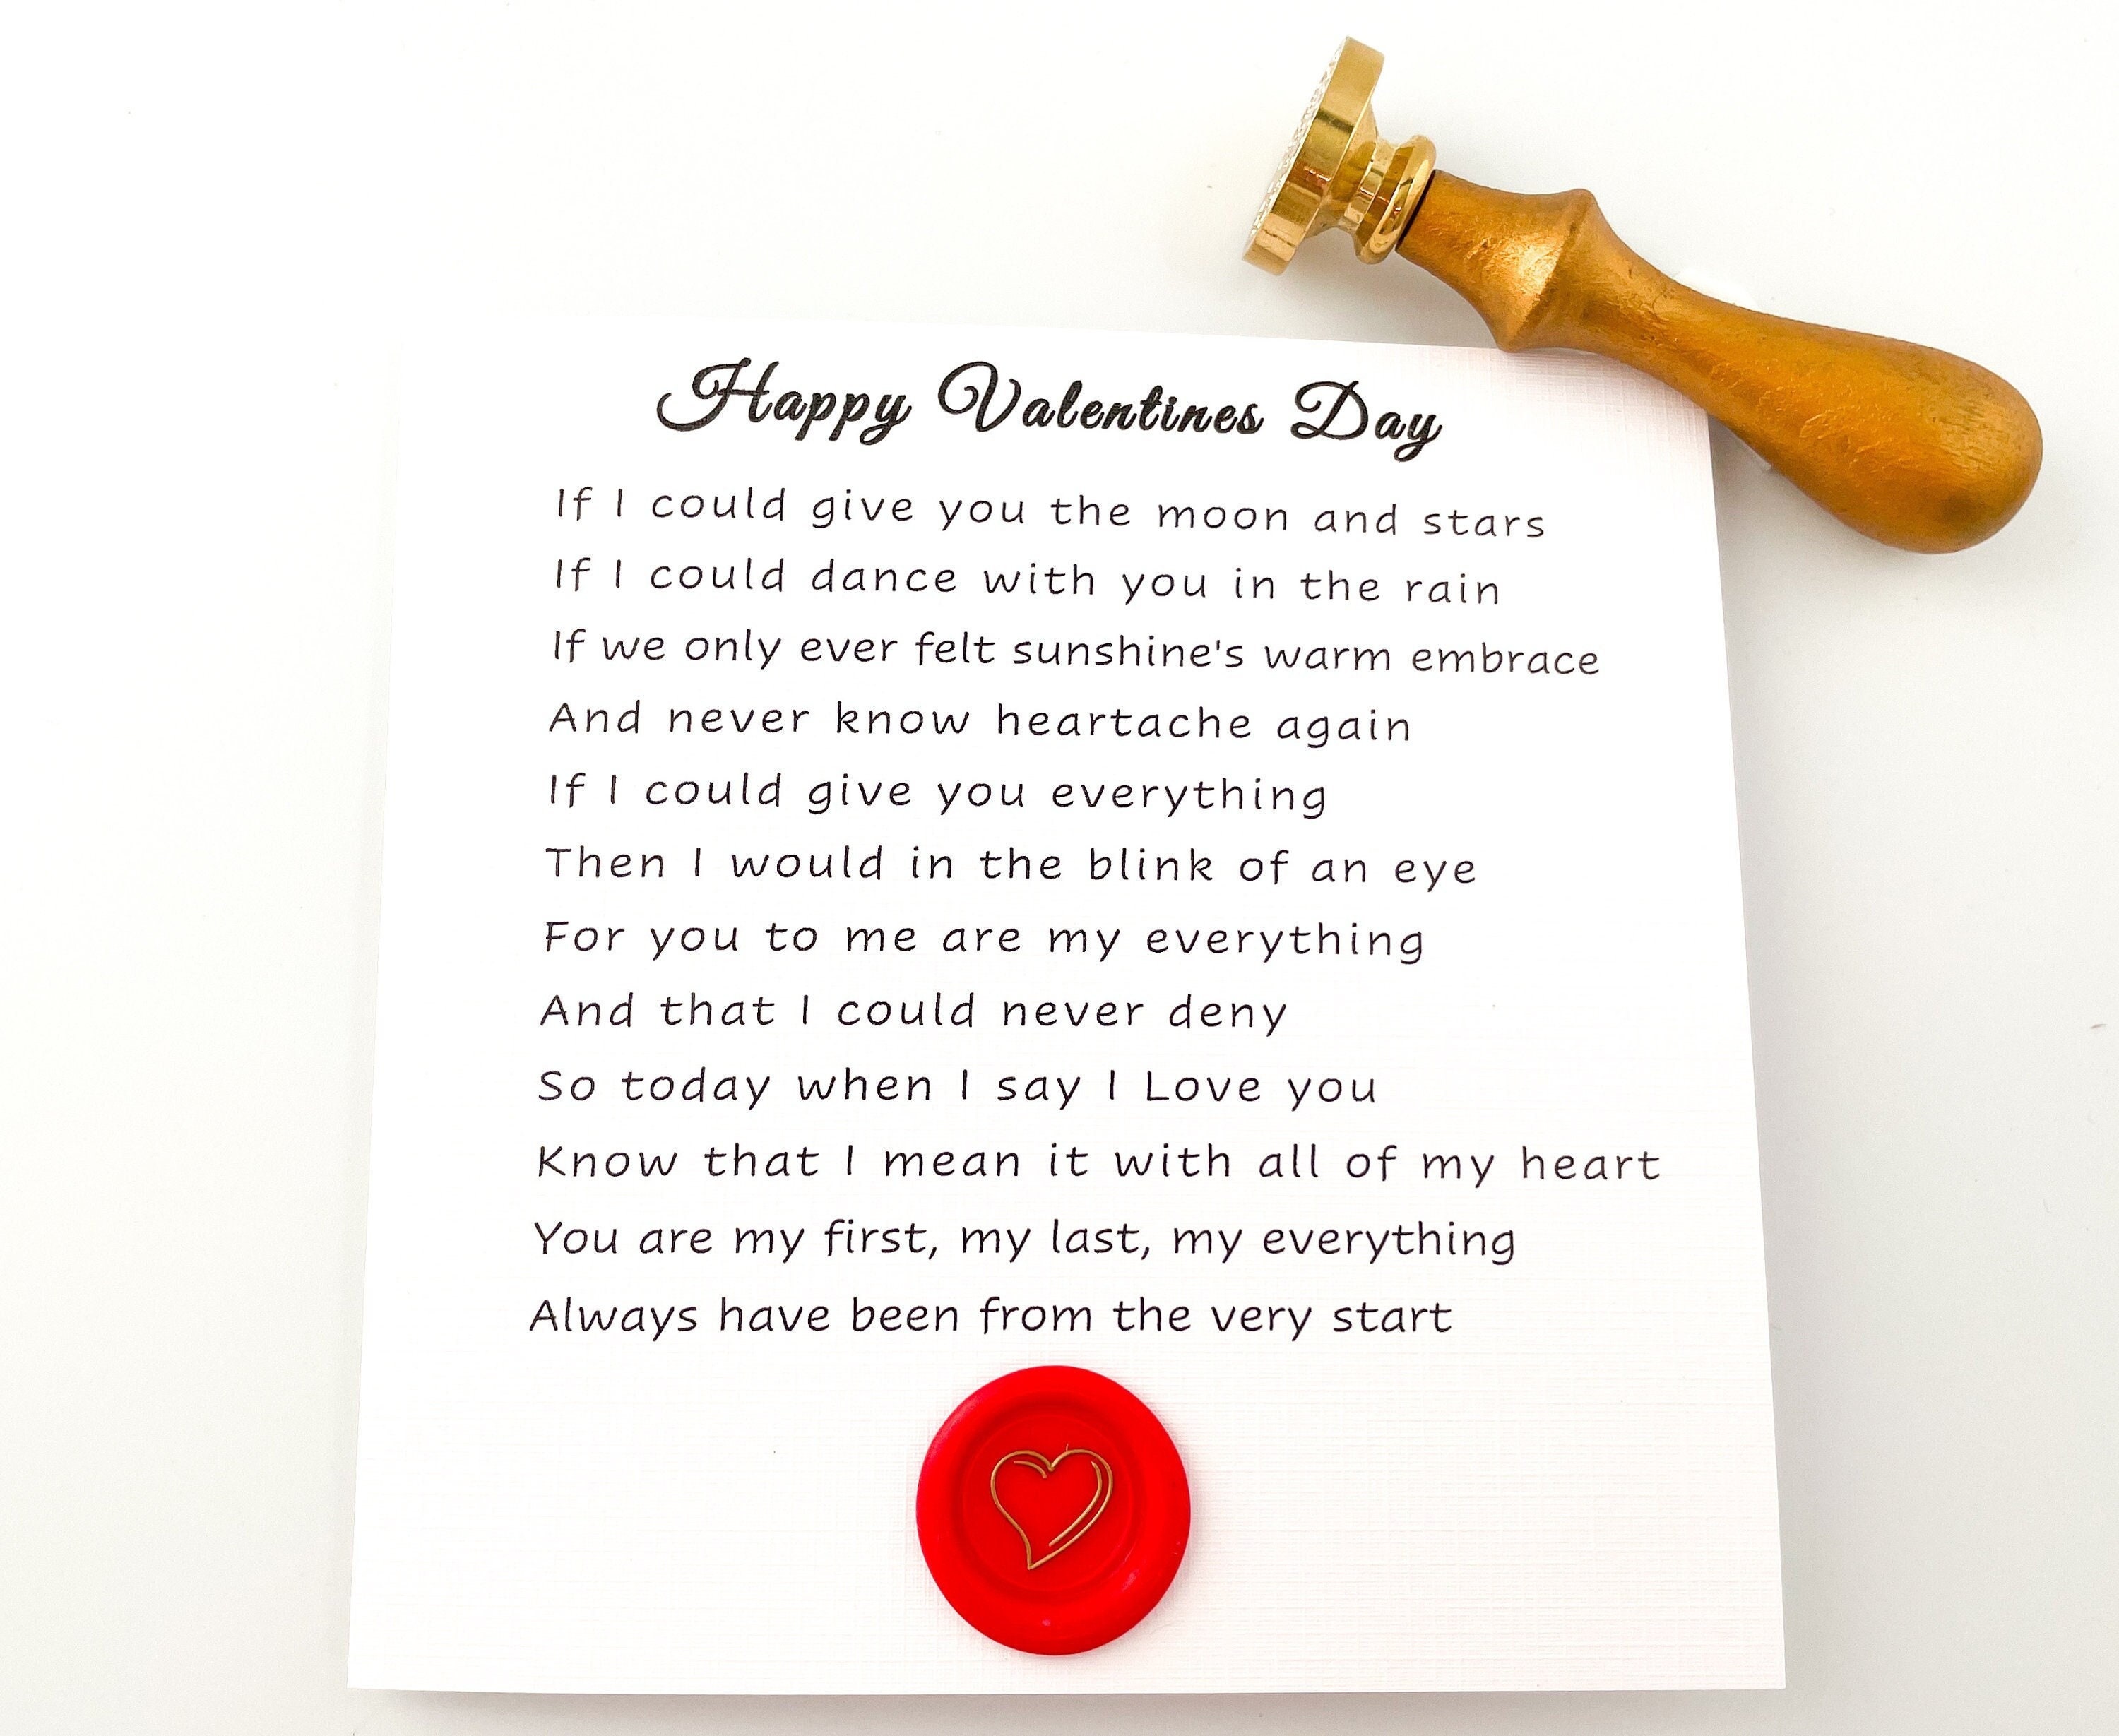 Happy Valentines Day
If I could give you the moon and stars
If I could dance with you in the rain
If we only ever felt sunshine's warm embrace
And never know heartache again
If I could give you everything
Then I would in the blink of an eye
For you to me are my everything
And that I could never deny
So today when I say I Love you
Know that I mean it with all of my heart
You are my first, my last, my everything
Always have been from the very start